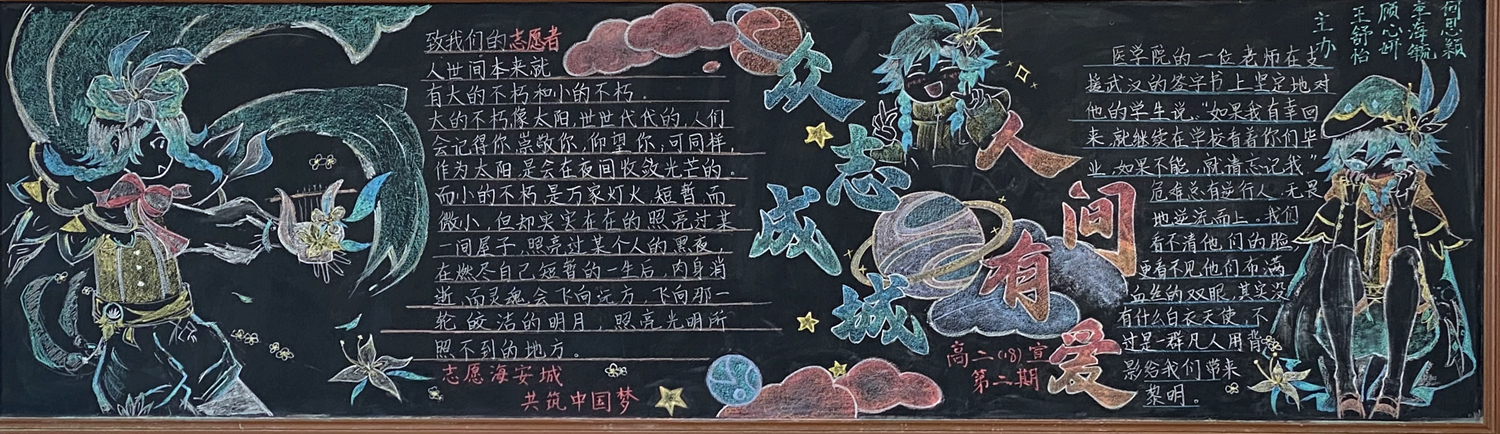 致我们的志愿者
人世间本来就
有大的不朽和小的不朽。
大的不朽像太阳,世世代代的,人们
会记得你,崇敬你,仰望你,可同样,
作为太阳,是会在夜间收敛光芒的。
而小的不朽是万家灯火,短暂,而
微小,但却实实在在的照亮过某
一间屋子,照亮过某个人的黑夜,
在燃尽自己短暂的一生后,肉身消
逝,而灵魂会飞向远方,飞向那一
轮皎洁的明月,照亮光明所
照不到的地方。
志愿海安城
共筑中国梦
众志成城
人间有爱
高二(18)宣
第二期
医学院的一位老师在支
援武汉的签字书上坚定地对
他的学生说:“如果我有幸回
来,就继续在学校看着你们毕
业,如果不能,就请忘记我”
危难总有逆行人,无畏
地逆流而上。我们
看不清他们的脸
更看不见他们布满
血丝的双眼,其实没
有什么白衣天使,不
过是一群凡人用背
影给我们带来
黎明。
何思颖
李萍毓
顾心妍
王舒怡
主办